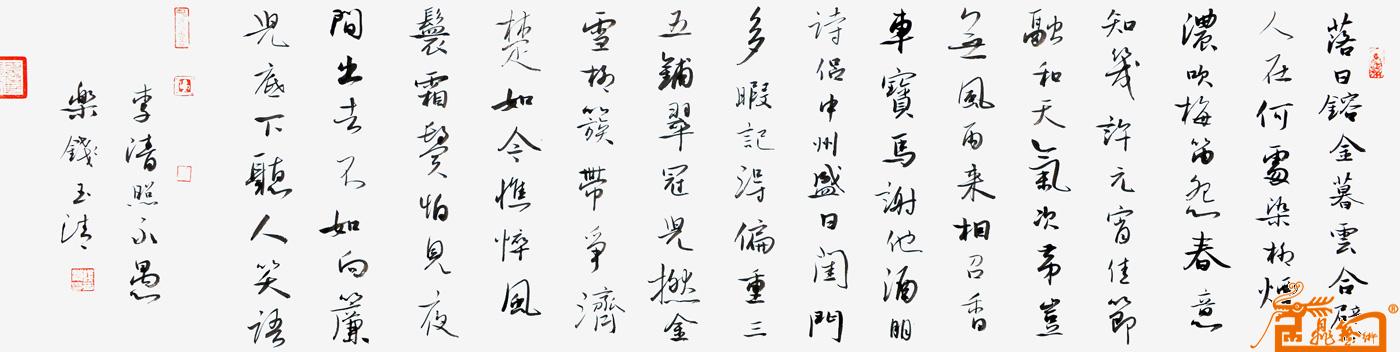 落日鎔金暮雲合璧
人在何處染柳煙
濃吹梅笛怨春意
知幾許元宵佳節
融和天氣次第豈
無風雨来相召香
車寶馬謝他酒朋
詩侣中州盛日閨門
多暇記得偏重三
五鋪翠冠兒撚金
雪柳簇帶爭濟
楚如今憔悴風
鬟霜鬢怕見夜
間出去不如向簾
兒底下聽人笑語
李清照永遇
樂錢玉清